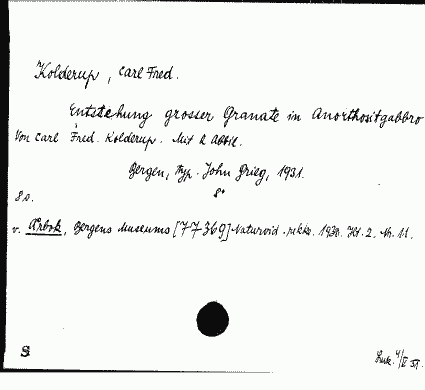 Kolderup, Carl Fred.
Entstehung grosser Granate in Anorthositgabbro
Von Carl Fred. Kolderup. Mit 2 Abbil.
Bergen, Typ. John Grieg, 1931.
8°
8 s.
v. Årbok, Bergens Museums [77369] Naturvid. rekke. 1930. Hft. 2. Nr. 11.
S